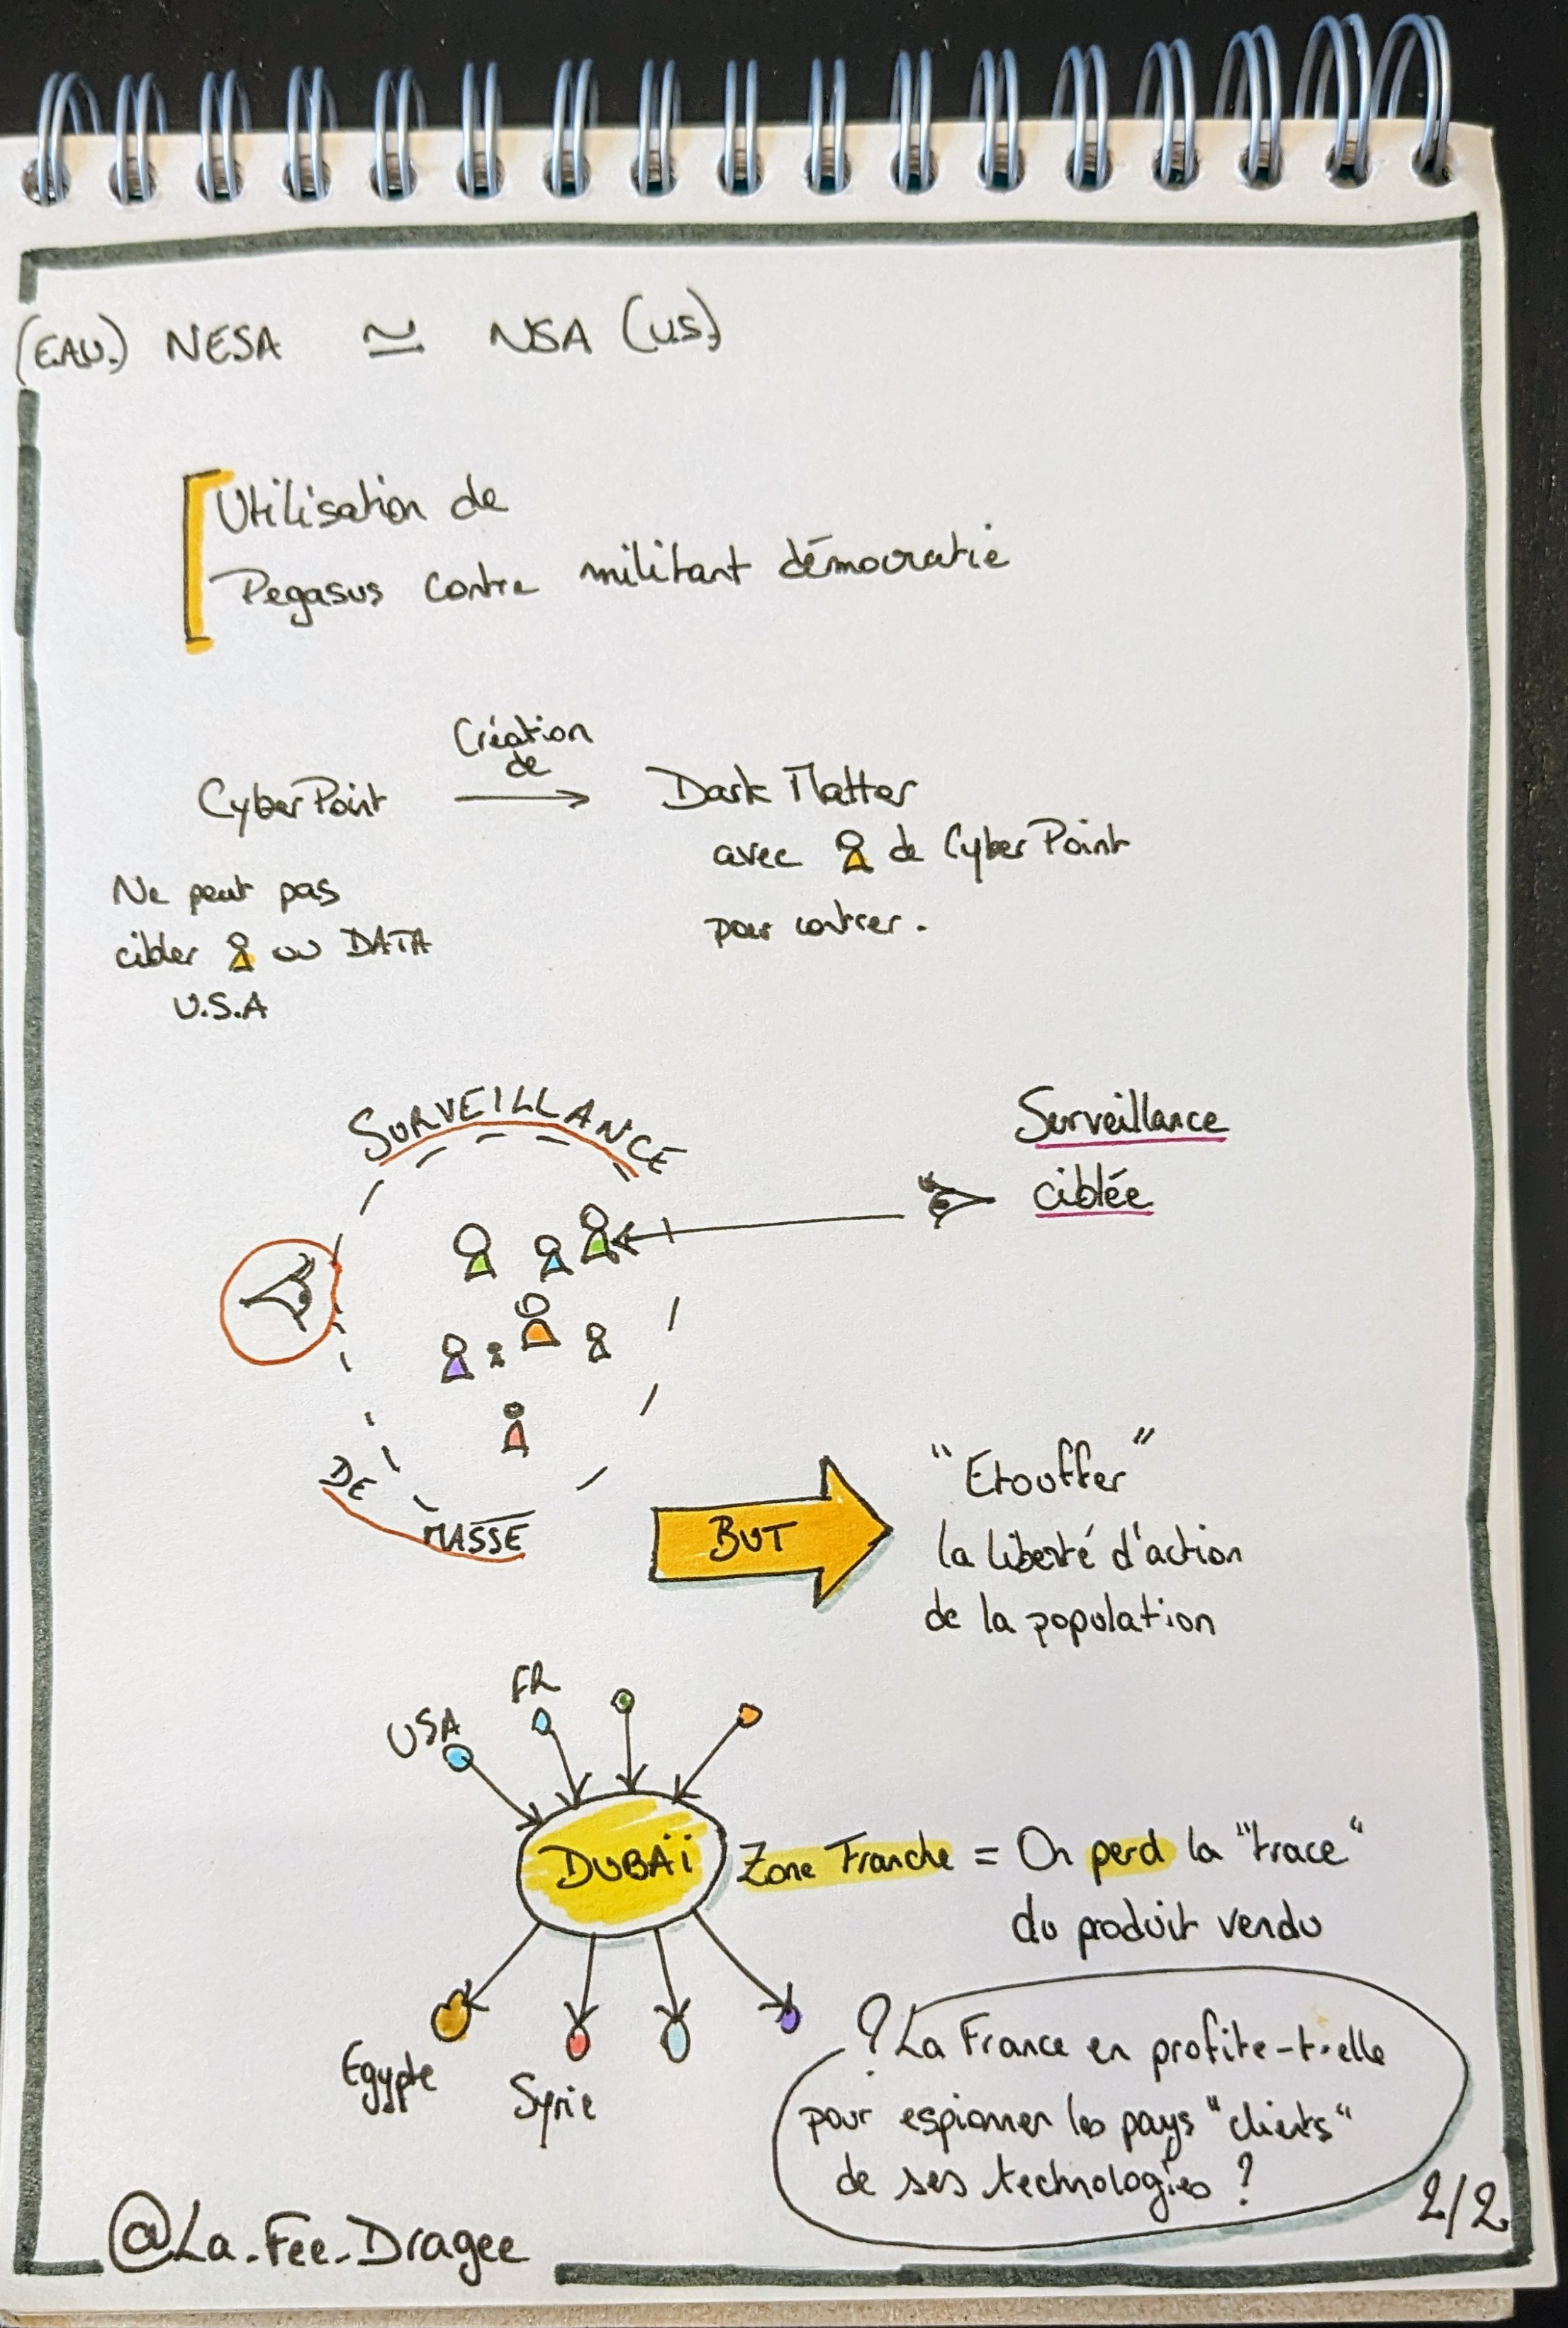 (E.A.U.) NESA ≃ NSA (US)
Utilisation de
Pegasus contre militant démocratie
CyberPoint
Création
de
Dark Matter
avec de CyberPoint
pour contrer.
Ne peut pas
cibler ou DATA
U.S.A
SURVEILLANCE
DE
MASSE
Surveillance
ciblée
BUT
"Etouffer"
la liberté d'action
de la population
USA
FR
DUBAï
Zone Franche = On perd la "trace"
du produit vendu
Egypte
Syrie
? La France en profite-t-elle
pour espionner les pays "clients"
de ses technologies ?
@La-Fee-Dragee
2/2